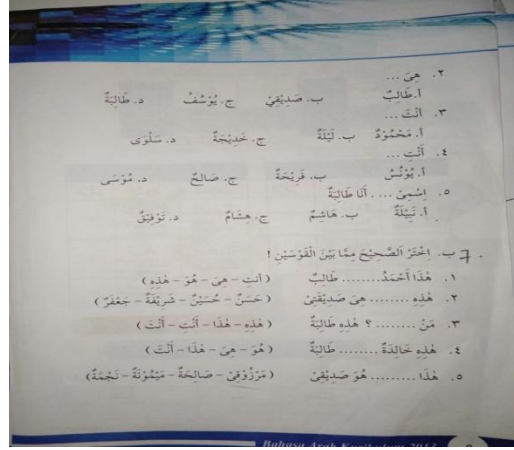 ٢. هِيَ ...
أ. طَالِبٌ ب. صَدِيْقِيْ ج. يُوْسُفُ د. طَالِبَةٌ
٣. أَنْتَ ...
أ. مَحْمُوْدٌ ب. لَيْلَةٌ ج. خَدِيْجَةٌ د. سَلْوَى
٤. أَنْتِ ...
أ. يُوْنُسُ ب. فَرِيْحَةٌ ج. صَالِحٌ د. مُوْسَى
٥. اِسْمِيْ .... أَنَا طَالِبَةٌ
أ. نَبِيْلَةٌ ب. هَاشِمٌ ج. هِشَامٌ د. تَوْفِيْقٌ
ب. اِخْتَرْ الصَّحِيْحَ مِمَّا بَيْنَ الْقَوْسَيْنِ !
١. هٰذَا أَحْمَدُ........ طَالِبٌ (أنتِ - هِيَ - هُوَ - هٰذِهِ)
٢. هٰذِهِ ......... هِيَ صَدِيْقَتِيْ (حَسَنٌ - حُسَيْنٌ - شَرِيْفَةٌ - جَعْفَرٌ)
٣. مَنْ ........ ؟ هٰذِهِ طَالِبَةٌ (هٰذِهِ - هٰذَا - أَنْتِ - أَنْتَ)
٤. هٰذِهِ خَالِدَةٌ ........ طَالِبَةٌ (هُوَ - هِيَ - هٰذَا - أَنْتَ)
٥. هٰذَا ......... هُوَ صَدِيْقِيْ (مَرْزُوْقِيْ - صَالِحَةٌ - مَيْمُوْنَةٌ - نَجْمَةٌ)
Bahasa Arab Kurikulum 2013